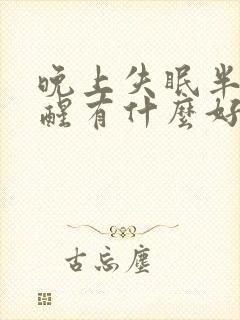 晚上失眠半
醒有什麼好
古忘塵